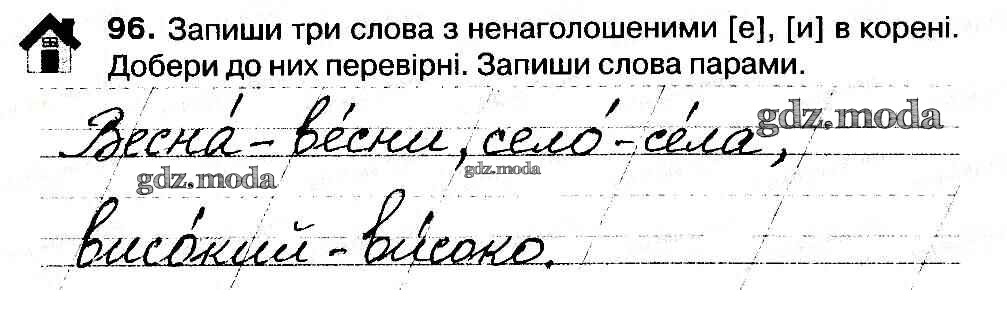 96. Запиши три слова з ненаголошеними [е], [и] в корені.
Добери до них перевірні. Запиши слова парами.
gdz.moda
Весна́ – ве́сни, село́ – се́ла,
gdz.moda
gdz.moda
висо́кий – ви́соко.